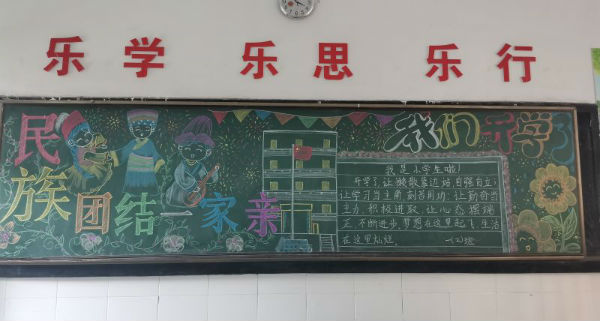 乐学 乐思 乐行
民族团结一家亲
我们开学了
我是小学生啦!
开学了,让懒散靠边站,自强自立;
让学习当主角,刻苦用功;让勤奋当
主力,积极进取;让心态摆端
正,不断进步,梦想在这里起飞,生活
在这里灿烂。
一(2)班